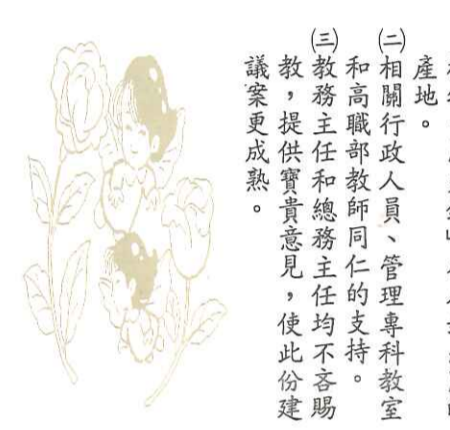 產地。
㈡相關行政人員、管理專科教室
和高職部教師同仁的支持。
㈢教務主任和總務主任均不吝賜
教，提供寶貴意見，使此份建
議案更成熟。